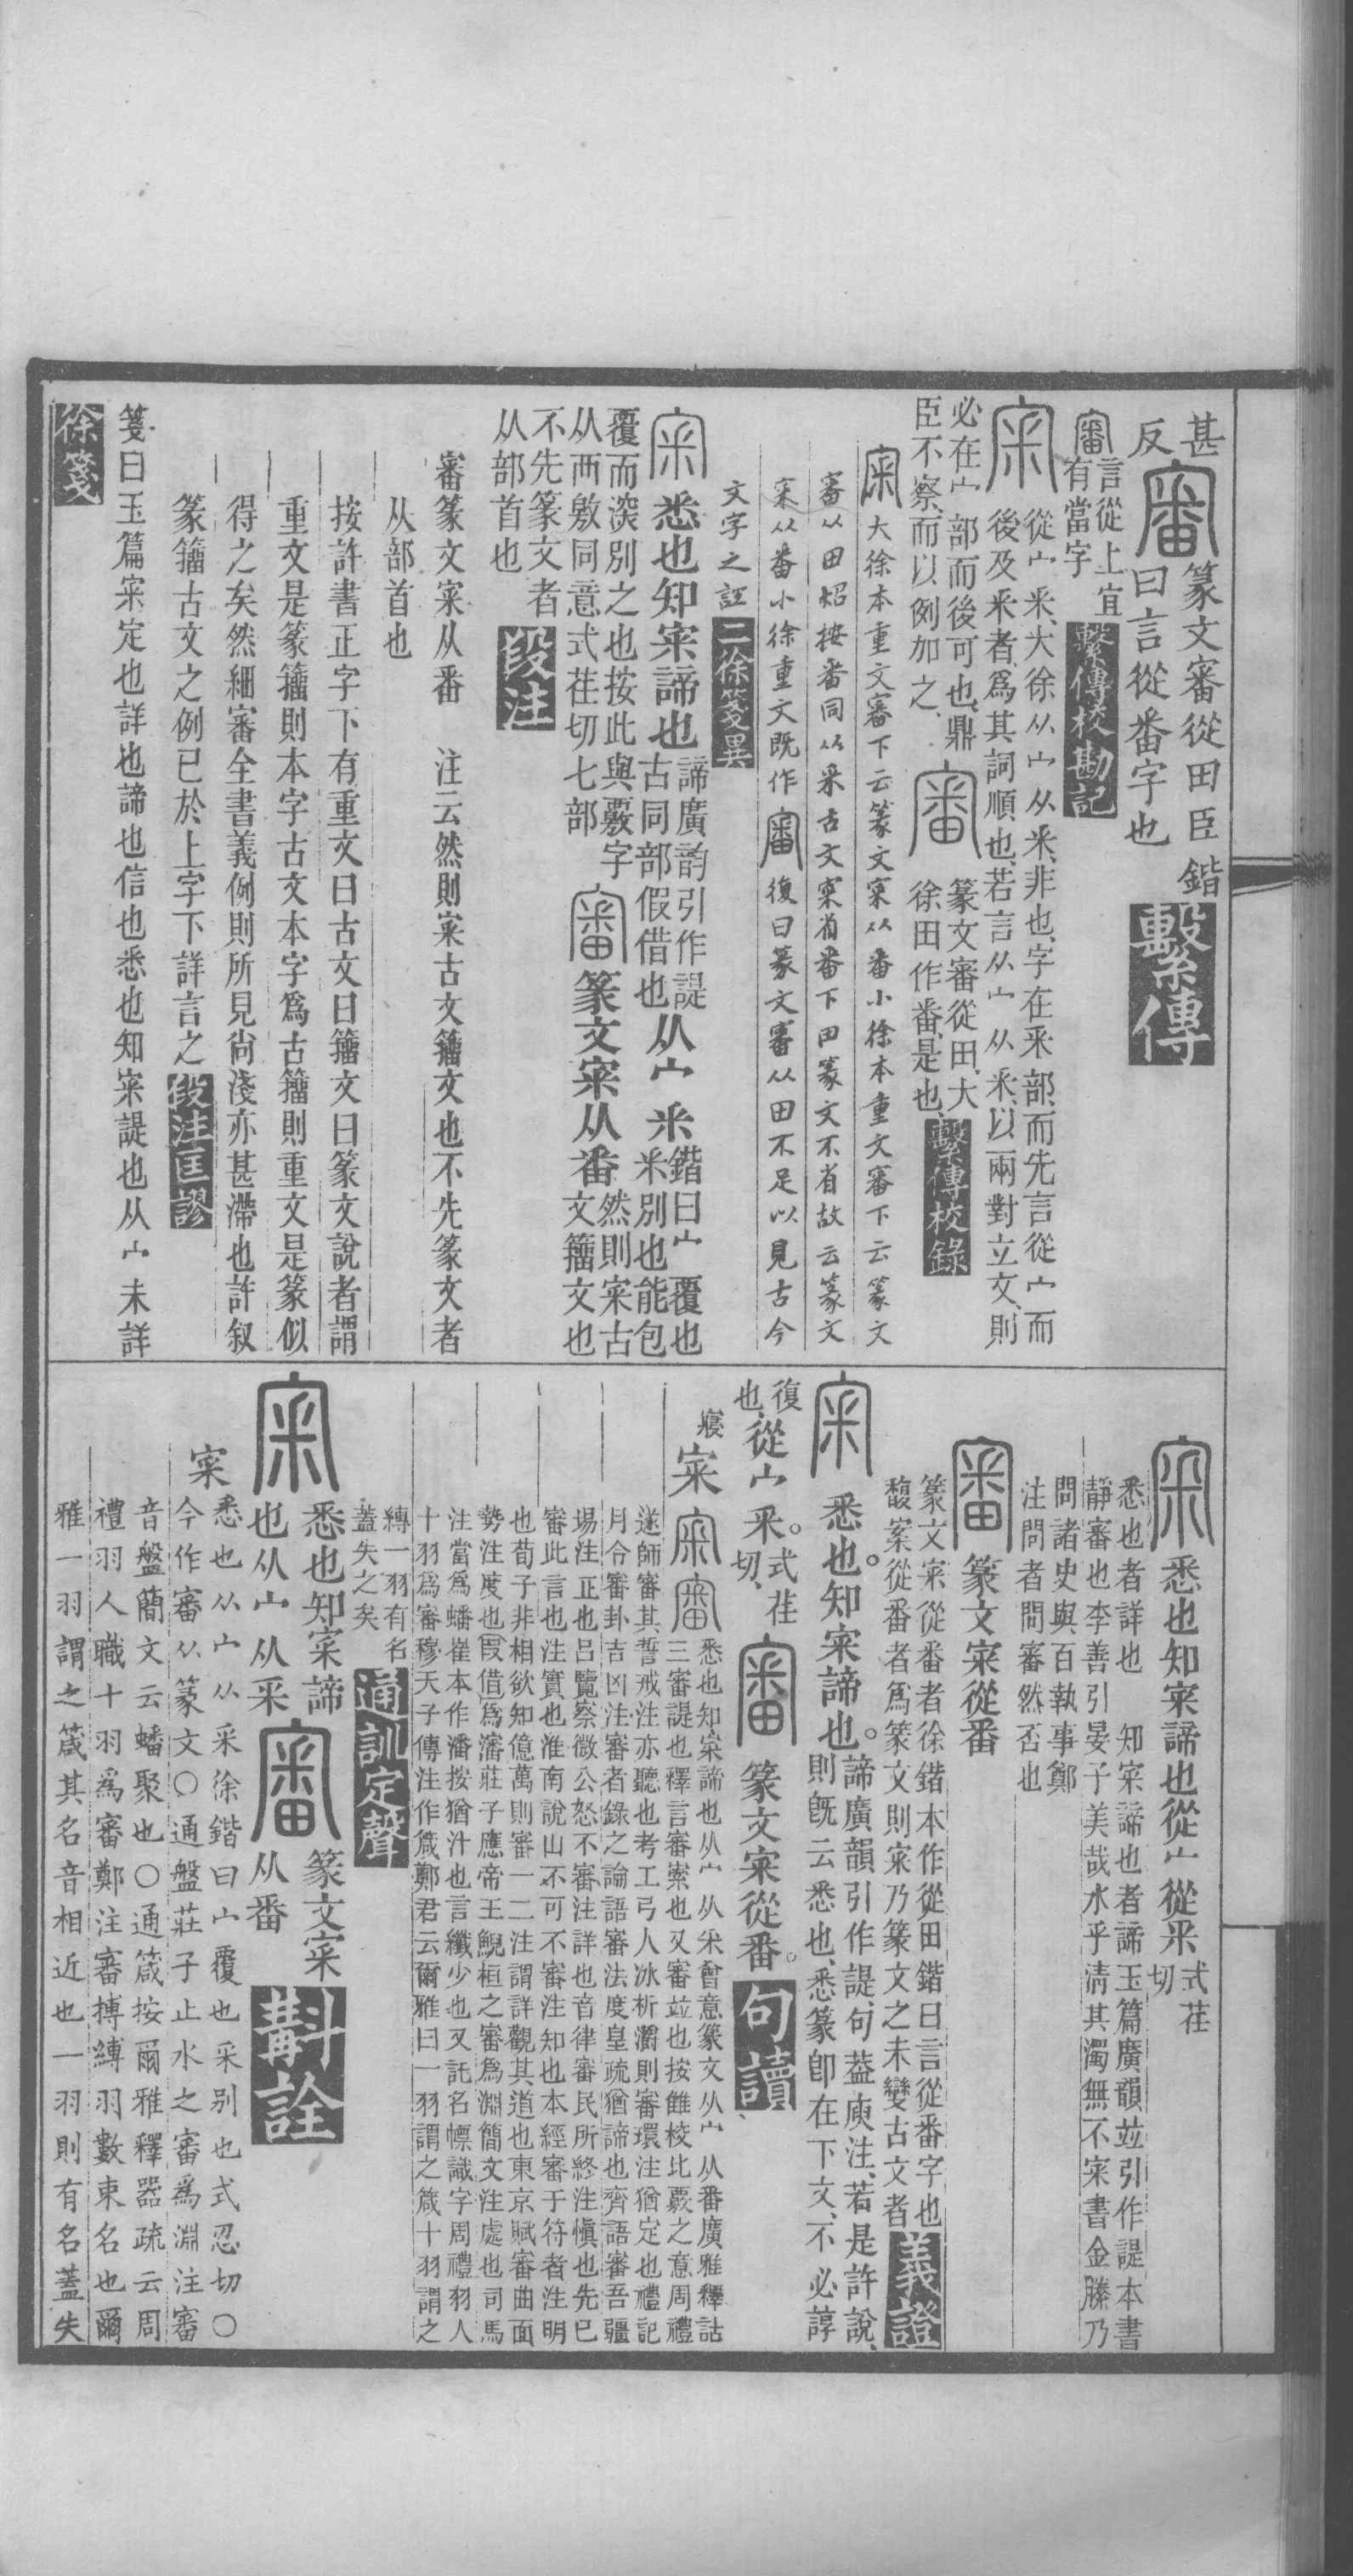 甚
反
審
篆文審從田臣鍇
曰言從番字也
繫傳
審
言從上宜
有當字
繫傳校勘記
宷
從宀釆、大徐从宀从釆、非也、字在釆部、而先言從宀而
後及釆者、爲其詞順也、若言从宀从釆、以兩對立文、則
必在宀部而後可也、鼎
臣不察、而以例加之、
審
篆文審從田、大
徐田作番、是也、
繫傳校錄
宷
大徐本重文審下云篆文宷从番小徐本重文審下云篆文
審从田炤按番同从釆古文宷省番下田篆文不省故云篆文
宷从番小徐重文既作審復曰篆文審从田不足以見古今
文字之誼
二徐箋異
宷
悉也知宷諦也
諦廣韵引作諟
古同部假借也
从宀釆
鍇曰宀覆也
釆別也能包
覆而深別之也按此與覈字
从襾敫同意式荏切七部
審
篆文宷从番
然則宷古
文籒文也
不先篆文者
从部首也
段注
審篆文宷从番　注云然則宷古文籒文也不先篆文者
从部首也
按許書正字下有重文曰古文曰籒文曰篆文說者謂
重文是篆籒則本字古文本字爲古籒則重文是篆似
得之矣然細審全書義例則所見尙淺亦甚滯也許叙
篆籒古文之例已於上字下詳言之
段注匡謬
箋曰玉篇宷定也詳也諦也信也悉也知宷諟也从宀未詳
徐箋
宷
悉也知宷諦也從宀從釆
式荏
切
悉也者詳也　知宷諦也者諦玉篇廣韻竝引作諟本書
靜審也李善引晏子美哉水乎淸其濁無不宷書金縢乃
問諸史與百執事鄭
注問者問審然否也
審
篆文宷從番
篆文宷從番者徐鍇本作從田鍇曰言從番字也
馥案從番者爲篆文則宷乃篆文之未變古文者
義證
宷
悉也。知宷諦也。
諦廣韻引作諟、句葢庾注、若是許說、
則旣云悉也、悉篆卽在下文、不必諄
復
也、
從宀釆。
式荏
切、
審
篆文宷從番。
句讀
㝲
宷
宷
審
悉也知宷諦也从宀从釆會意篆文从宀从番廣雅釋詁
三審諟也釋言審宷也又審竝也按雔校比覈之意周禮
遂師審其誓戒注亦聽也考工弓人冰析灂則審環注猶定也禮記
月令審卦吉凶注審者錄之論語審法度皇疏猶諦也齊語審吾疆
場注正也呂覽察微公怒不審注詳也音律審民所終注愼也先己
審此言也注實也淮南說山不可不審注知也本經審于符者注明
也荀子非相欲知億萬則審一二注謂詳觀其道也東京賦審曲面
勢注度也叚借爲瀋莊子應帝王鯢桓之審爲淵簡文注處也司馬
注當爲蟠崔本作潘按猶汁也言纖少也又託名幖識字周禮羽人
十羽爲審穆天子傳注作箴鄭君云爾雅曰一羽謂之箴十羽謂之
縳一羽有名
蓋失之矣
通訓定聲
宷
悉也知宷諦
也从宀从釆
審
篆文宷
从番
斠詮
宷
悉也从宀从釆徐鍇曰宀覆也釆别也式忍切〇
今作審从篆文〇通盤莊子止水之審爲淵注審
音盤簡文云蟠聚也〇通箴按爾雅釋器疏云周
禮羽人職十羽爲審鄭注審搏縛羽數束名也爾
雅一羽謂之箴其名音相近也一羽則有名蓋失